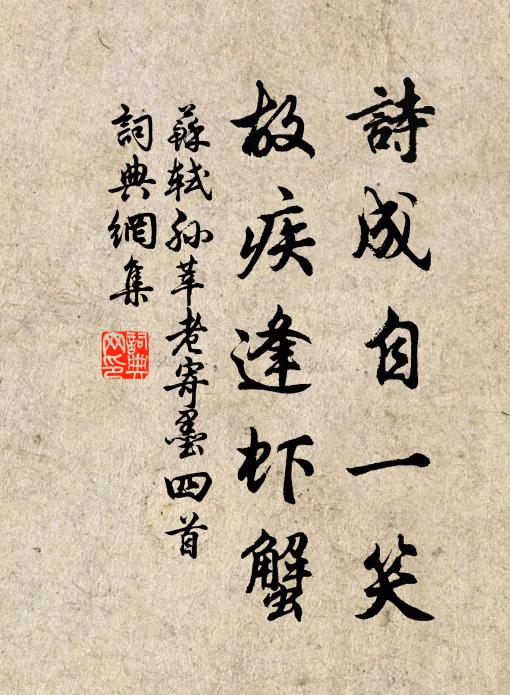 詩成自一笑
故疾逢虾蟹
蘇轼孙莘老寄墨四首
詞典網集
詞典网印